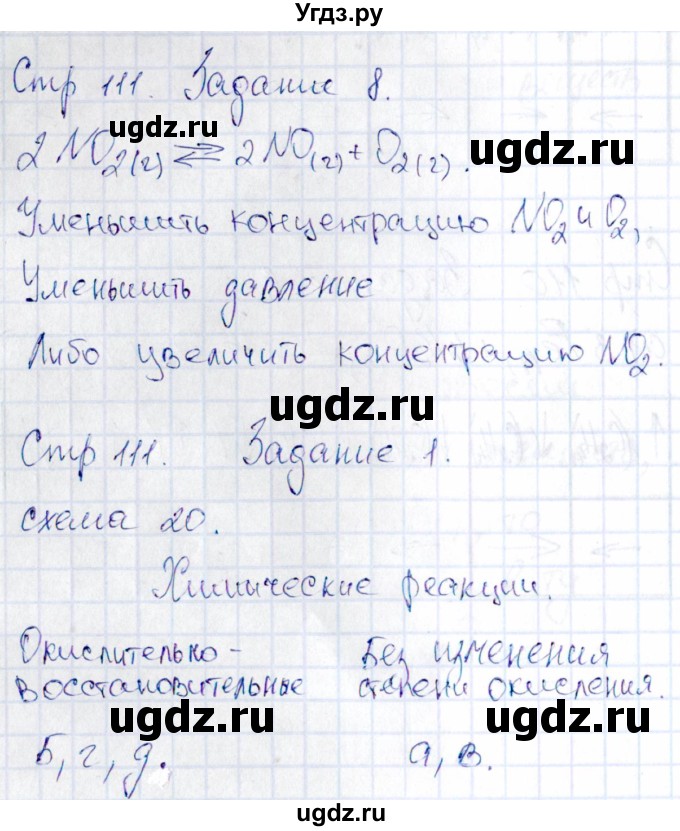 Угдз.ру
Стр 111. Задание 8.
ugdz.ru
2NO₂(г) ⇄ 2NO(г) + O₂(г).
ugdz.ru
Уменьшить концентрацию NO₂ и O₂,
Уменьшить давление
Либо увеличить концентрацию NO₂.
ugdz.ru
Стр 111. Задание 1.
схема 20.
Химические реакции.
Окислительно- Без изменения
восстановительные степени окисления.
ugdz.ru ugdz.ru
Б, г, д. а, в.
ugdz.ru